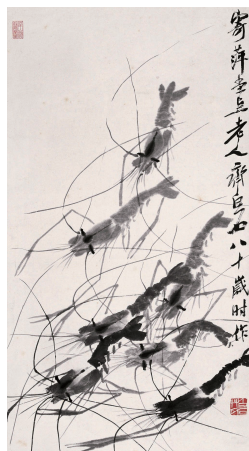 寄萍堂上老人齊白石八十歲時作